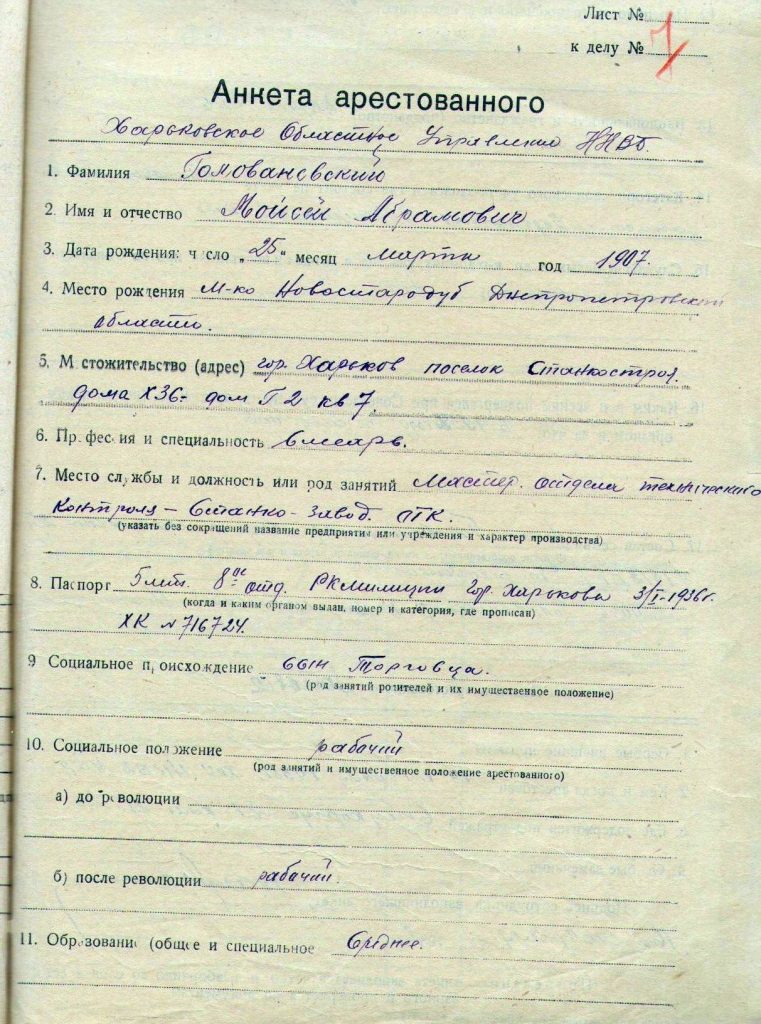 Лист №
к делу № 7
Анкета арестованного
Харьковское Областное Управление НКВД.
1. Фамилия Голованевский
2. Имя и отчество Мойсей Абрамович
3. Дата рождения: число „25“ месяц марта год 1907.
4. Место рождения М-ко Новостародуб Днепропетровской
области.
5. Местожительство (адрес) гор. Харьков поселок Станкостроя.
дома ХЗ6- дом Г2 кв 7.
6. Профессия и специальность Слесарь.
7. Место службы и должность или род занятий Мастер. отдела технического
контроля – Станко-завод. ОТК.
(указать без сокращений название предприятия или учреждения и характер производства)
8. Паспорт 5 лет. 8ое отд. РКМилиции гор. Харькова 3/I-1936г.
(когда и каким органом выдан, номер и категория, где прописан)
ХК № 716724.
9 Социальное происхождение сын Торговца.
(род занятий родителей и их имущественное положение)
10. Социальное положение рабочий
(род занятий и имущественное положение арестованного)
а) до революции
б) после революции рабочий
11. Образование (общее и специальное Среднее.